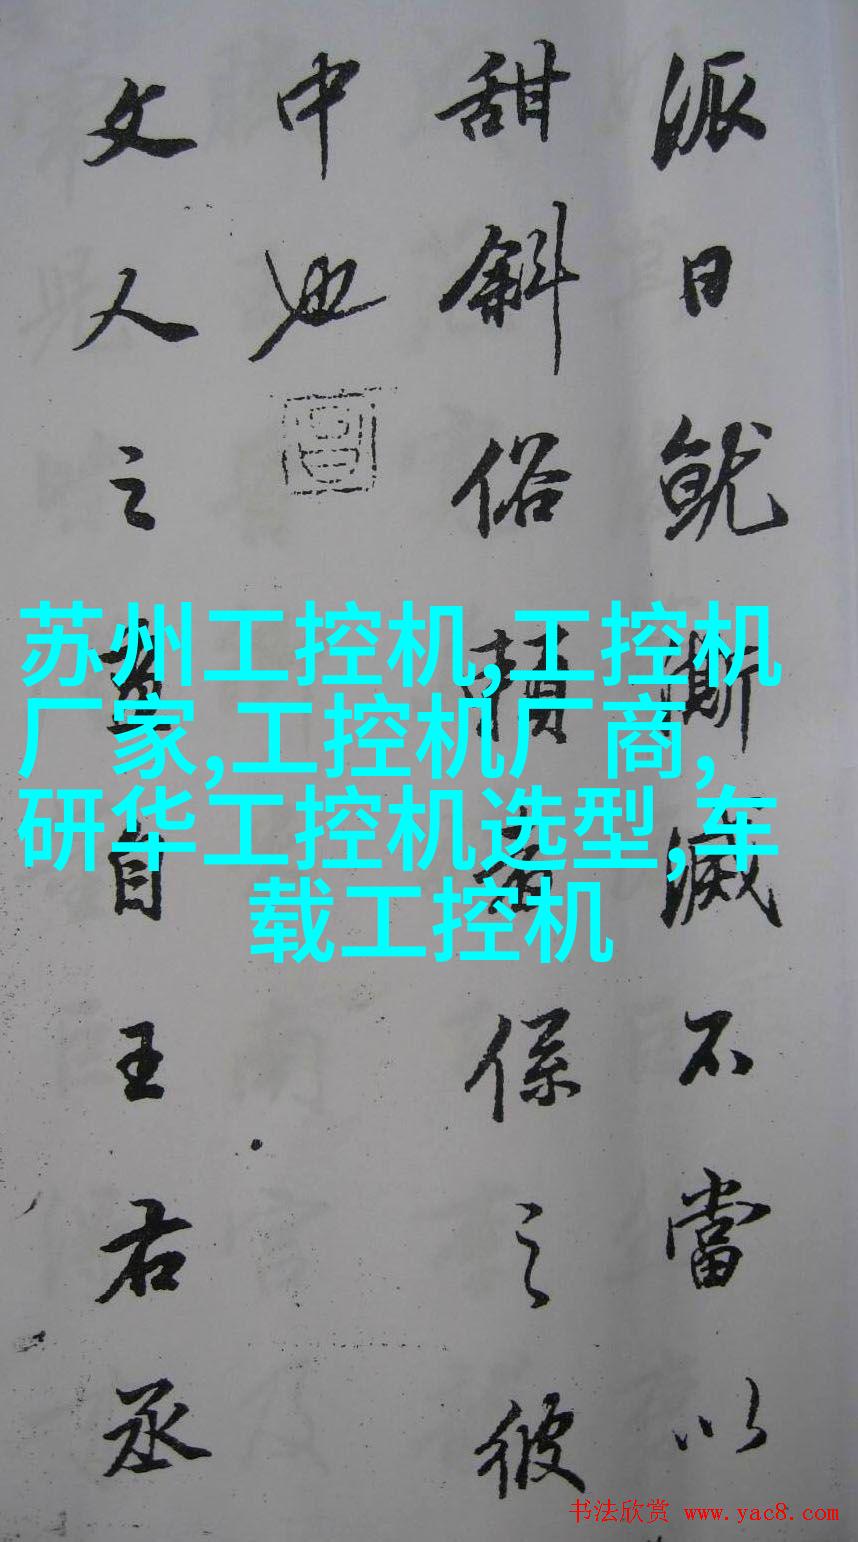 派日就澌滅不當以
甜斜俗賴者係之彼
中也
文人之畫自王右丞
苏州工控机,工控机
厂家,工控机厂商,
研华工控机选型,车
载工控机
书法欣赏 www.yac8.com